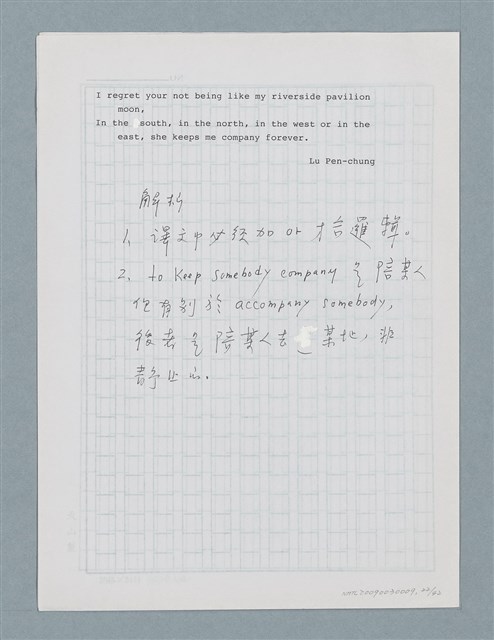 I regret your not being like my riverside pavilion
moon,
In the south, in the north, in the west or in the
east, she keeps me company forever.
Lu Pen-chung
解析
1、譯文中必須加 or 才合邏輯。
2、to keep somebody company 是陪某人
但有別於 accompany somebody,
後者是陪某人去某地，非
靜止的.